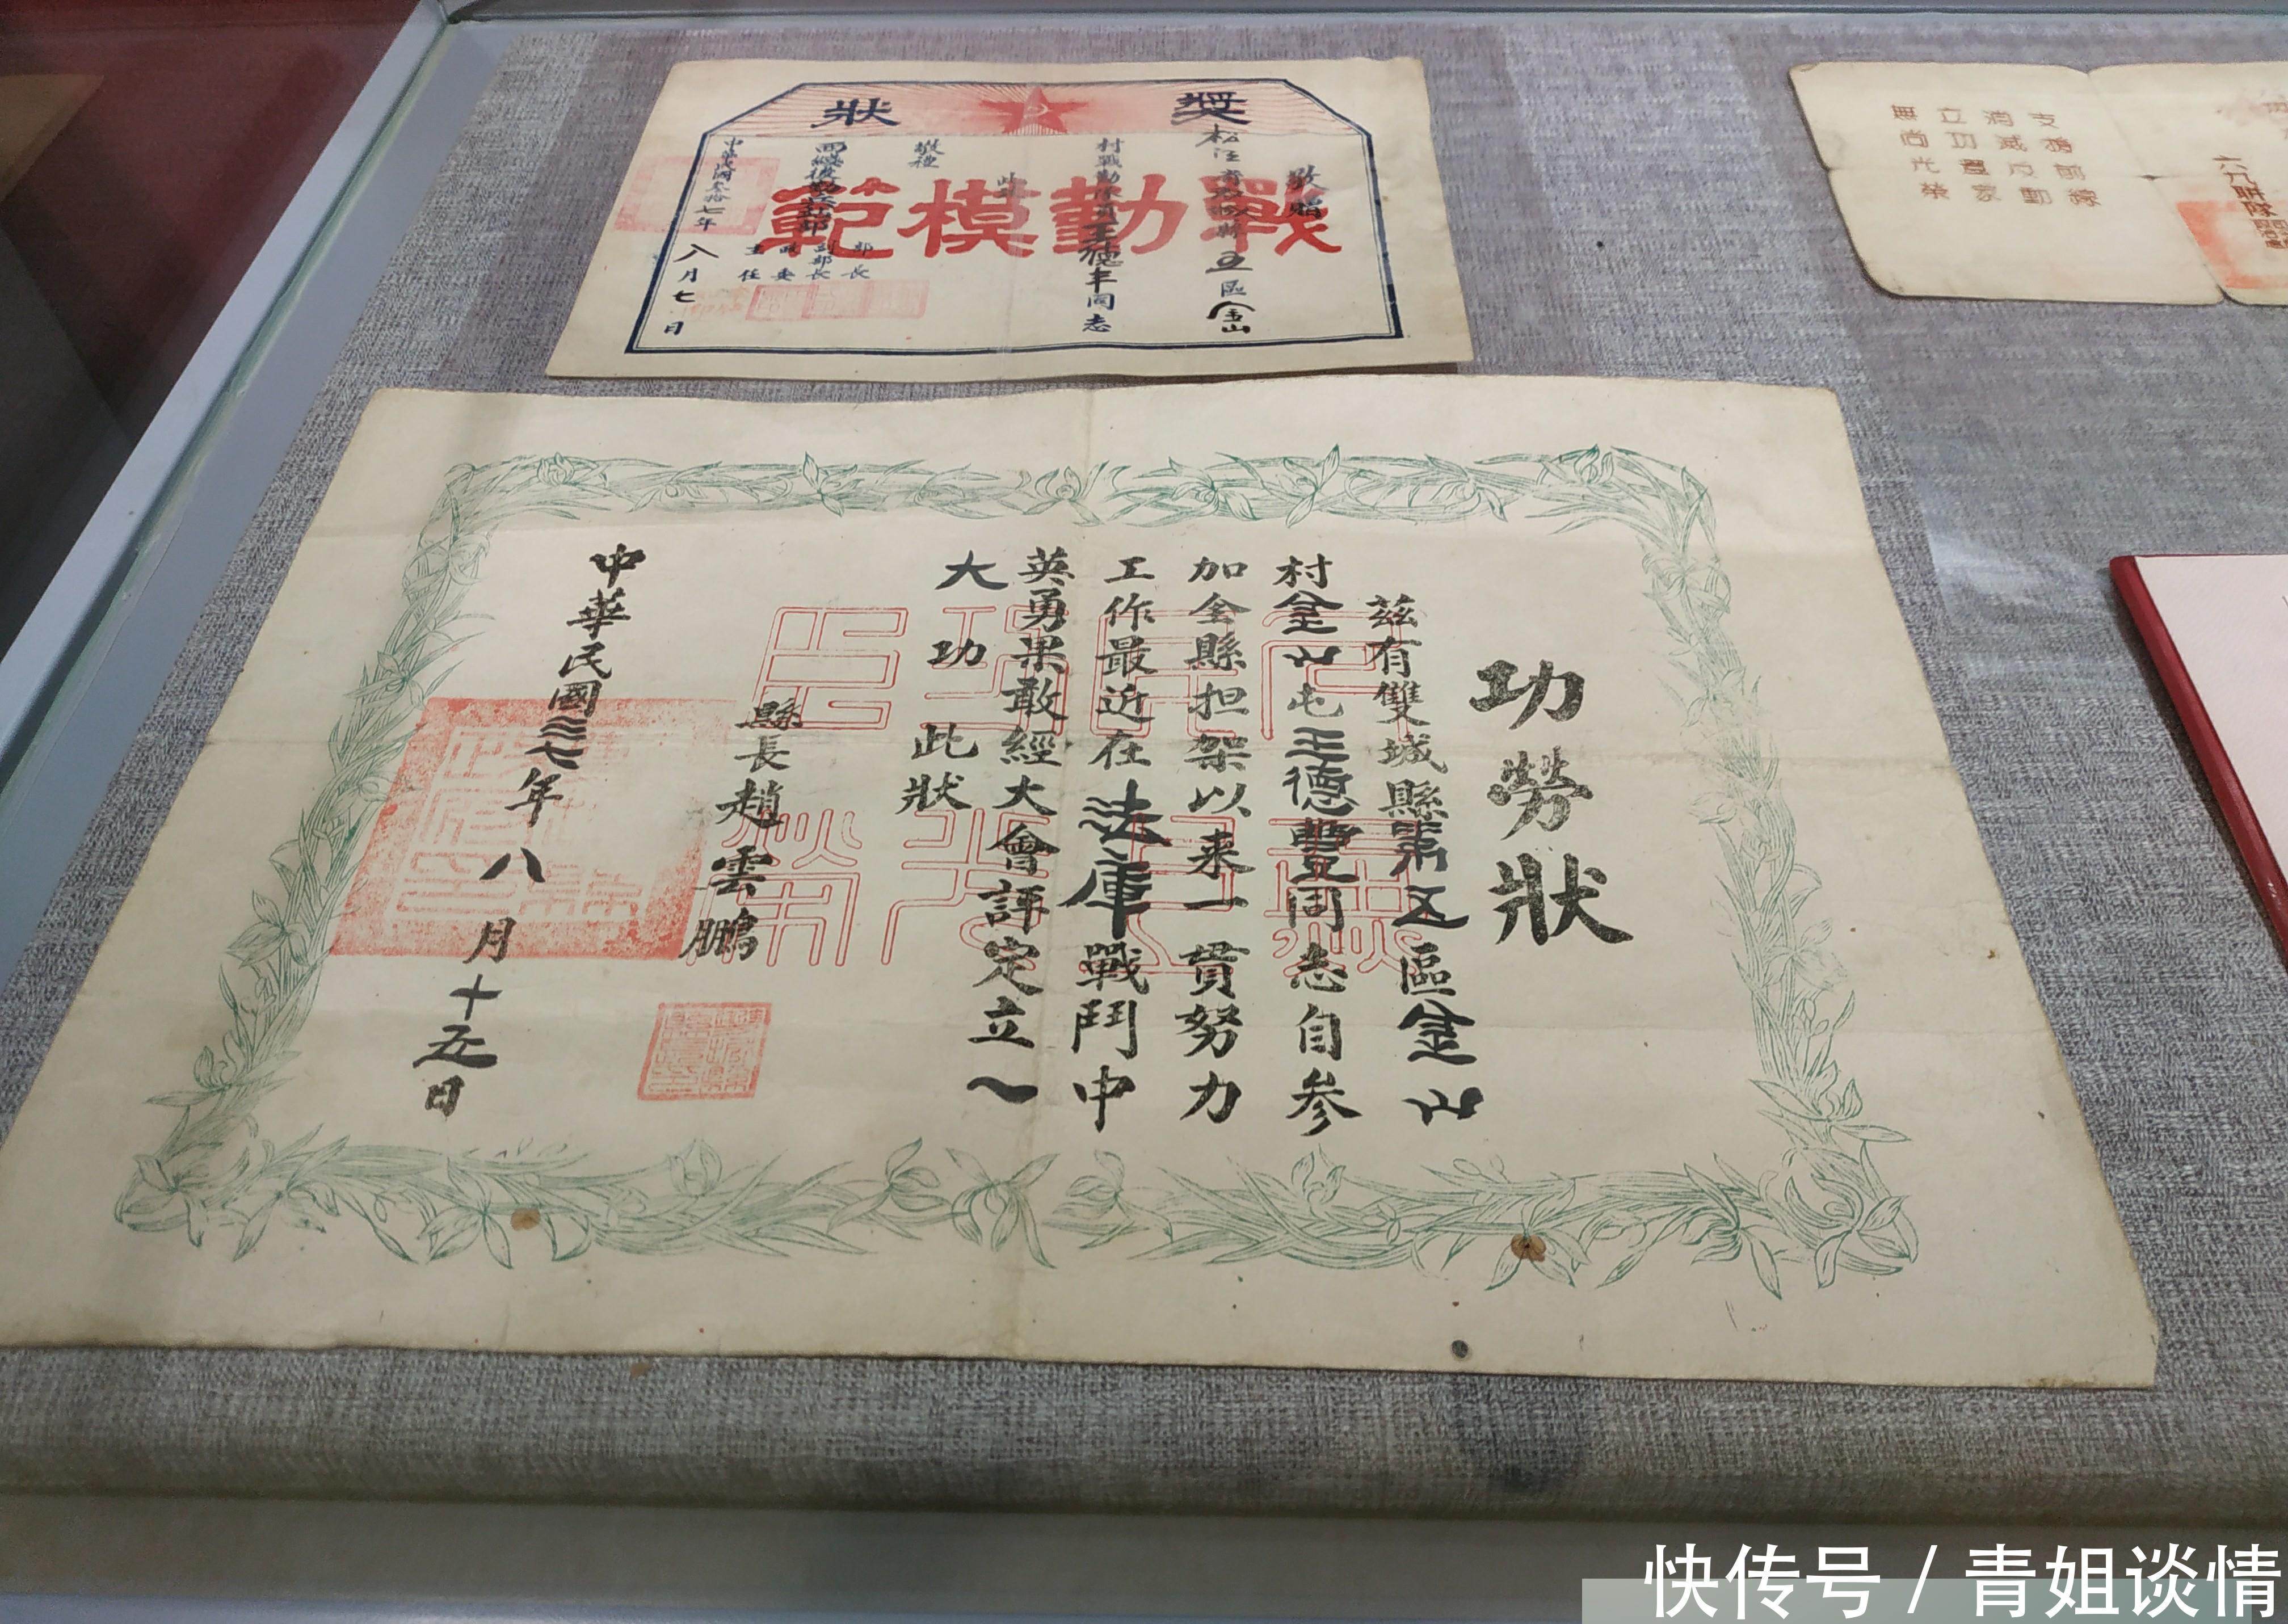 獎狀
戰勤模範
敬贈
松江省雙城縣五區金山
村戰勤隊員王德丰同志
此
敬禮
部長
副部長
政委
主任
中華民國叁拾七年八月七日
支援前線
消滅反動
立功還家
無尚光榮
功勞狀
茲有雙城縣第五區金山
村金山屯王德豐同志自參
加全縣担架以来一貫努力
工作最近在法庫戰鬥中
英勇果敢經大會評定立一
大功此狀
縣長趙雲鵬
中華民國三七年八月十五日
快传号 / 青姐谈情